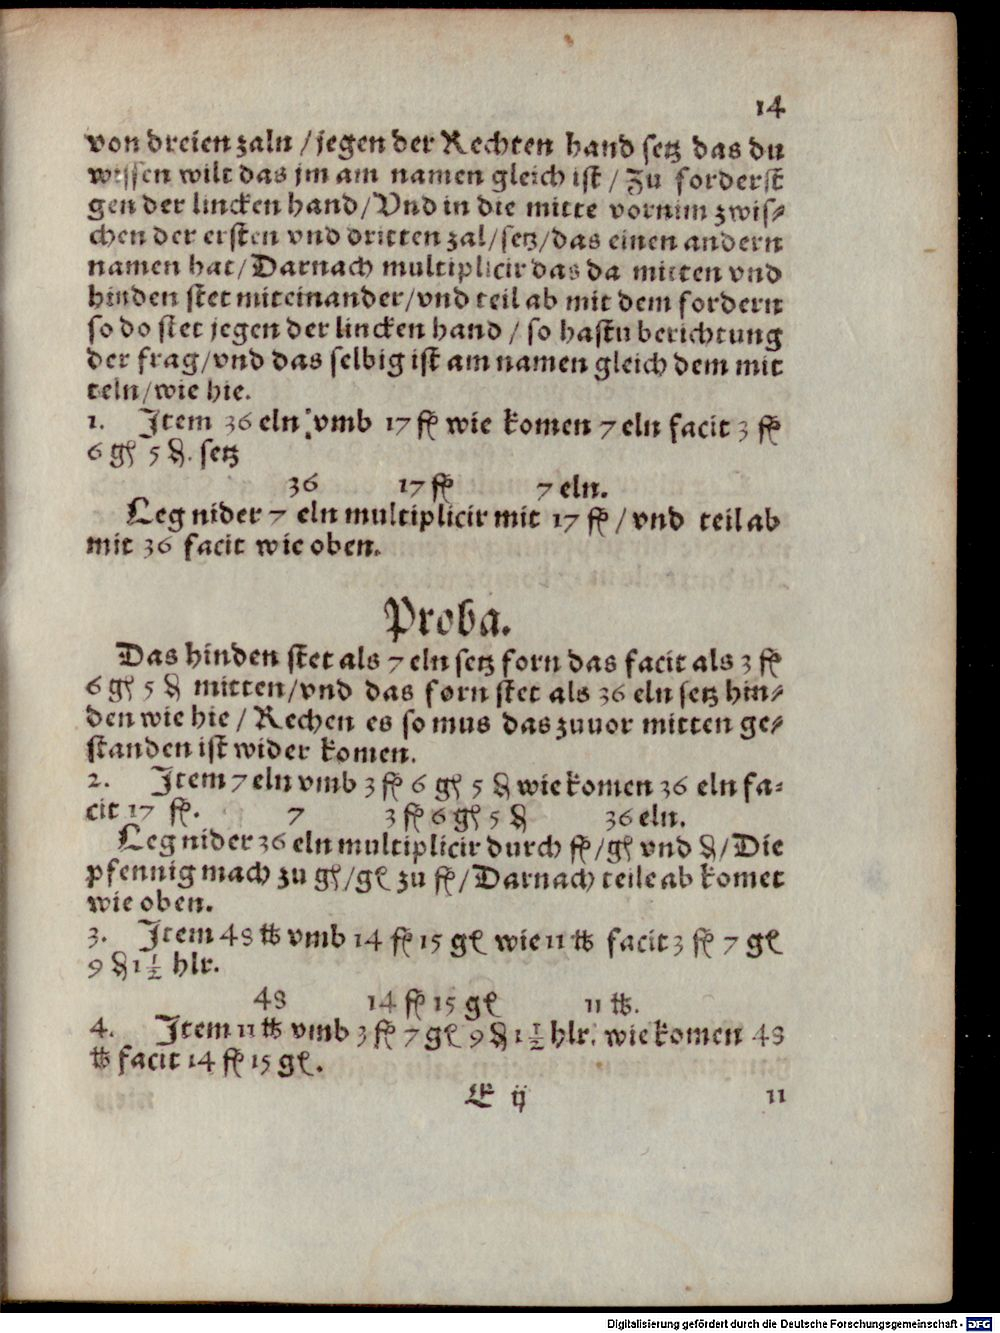 14
von dreien zaln / jegen der Rechten hand setz das du
wissen wilt das jm am namen gleich ist / Zu forderst
gen der lincken hand / Vnd in die mitte vornim zwis⸗
chen der ersten vnd dritten zal / setz / das einen andern
namen hat / Darnach multiplicir das da mitten vnd
hinden stet miteinander / vnd teil ab mit dem fordern
so do stet jegen der lincken hand / so hastu berichtung
der frag / vnd das selbig ist am namen gleich dem mit
teln / wie hie.
1. Item 36 eln vmb 17 fl wie komen 7 eln facit 3 fl
6 gl 5 ₰. setz
36 17 fl 7 eln.
Leg nider 7 eln multiplicir mit 17 fl / vnd teil ab
mit 36 facit wie oben.
Proba.
Das hinden stet als 7 eln setz forn das facit als 3 fl
6 gl 5 ₰ mitten / vnd das forn stet als 36 eln setz hin⸗
den wie hie / Rechen es so mus das zuuor mitten ge⸗
standen ist wider komen.
2. Item 7 eln vmb 3 fl 6 gl 5 ₰ wie komen 36 eln fa⸗
cit 17 fl. 7 3 fl 6 gl 5 ₰ 36 eln.
Leg nider 36 eln multiplicir durch fl / gl vnd ₰ / Die
pfennig mach zu gl / gl zu fl / Darnach teile ab komet
wie oben.
3. Item 48 ℔ vmb 14 fl 15 gl wie 11 ℔ facit 3 fl 7 gl
9 ₰ 1 1/2 hlr.
48 14 fl 15 gl 11 ℔.
4. Item 11 ℔ vmb 3 fl 7 gl 9 ₰ 1 1/2 hlr. wie komen 48
℔ facit 14 fl 15 gl.
E ij 11
Digitalisierung gefördert durch die Deutsche Forschungsgemeinschaft - DFG